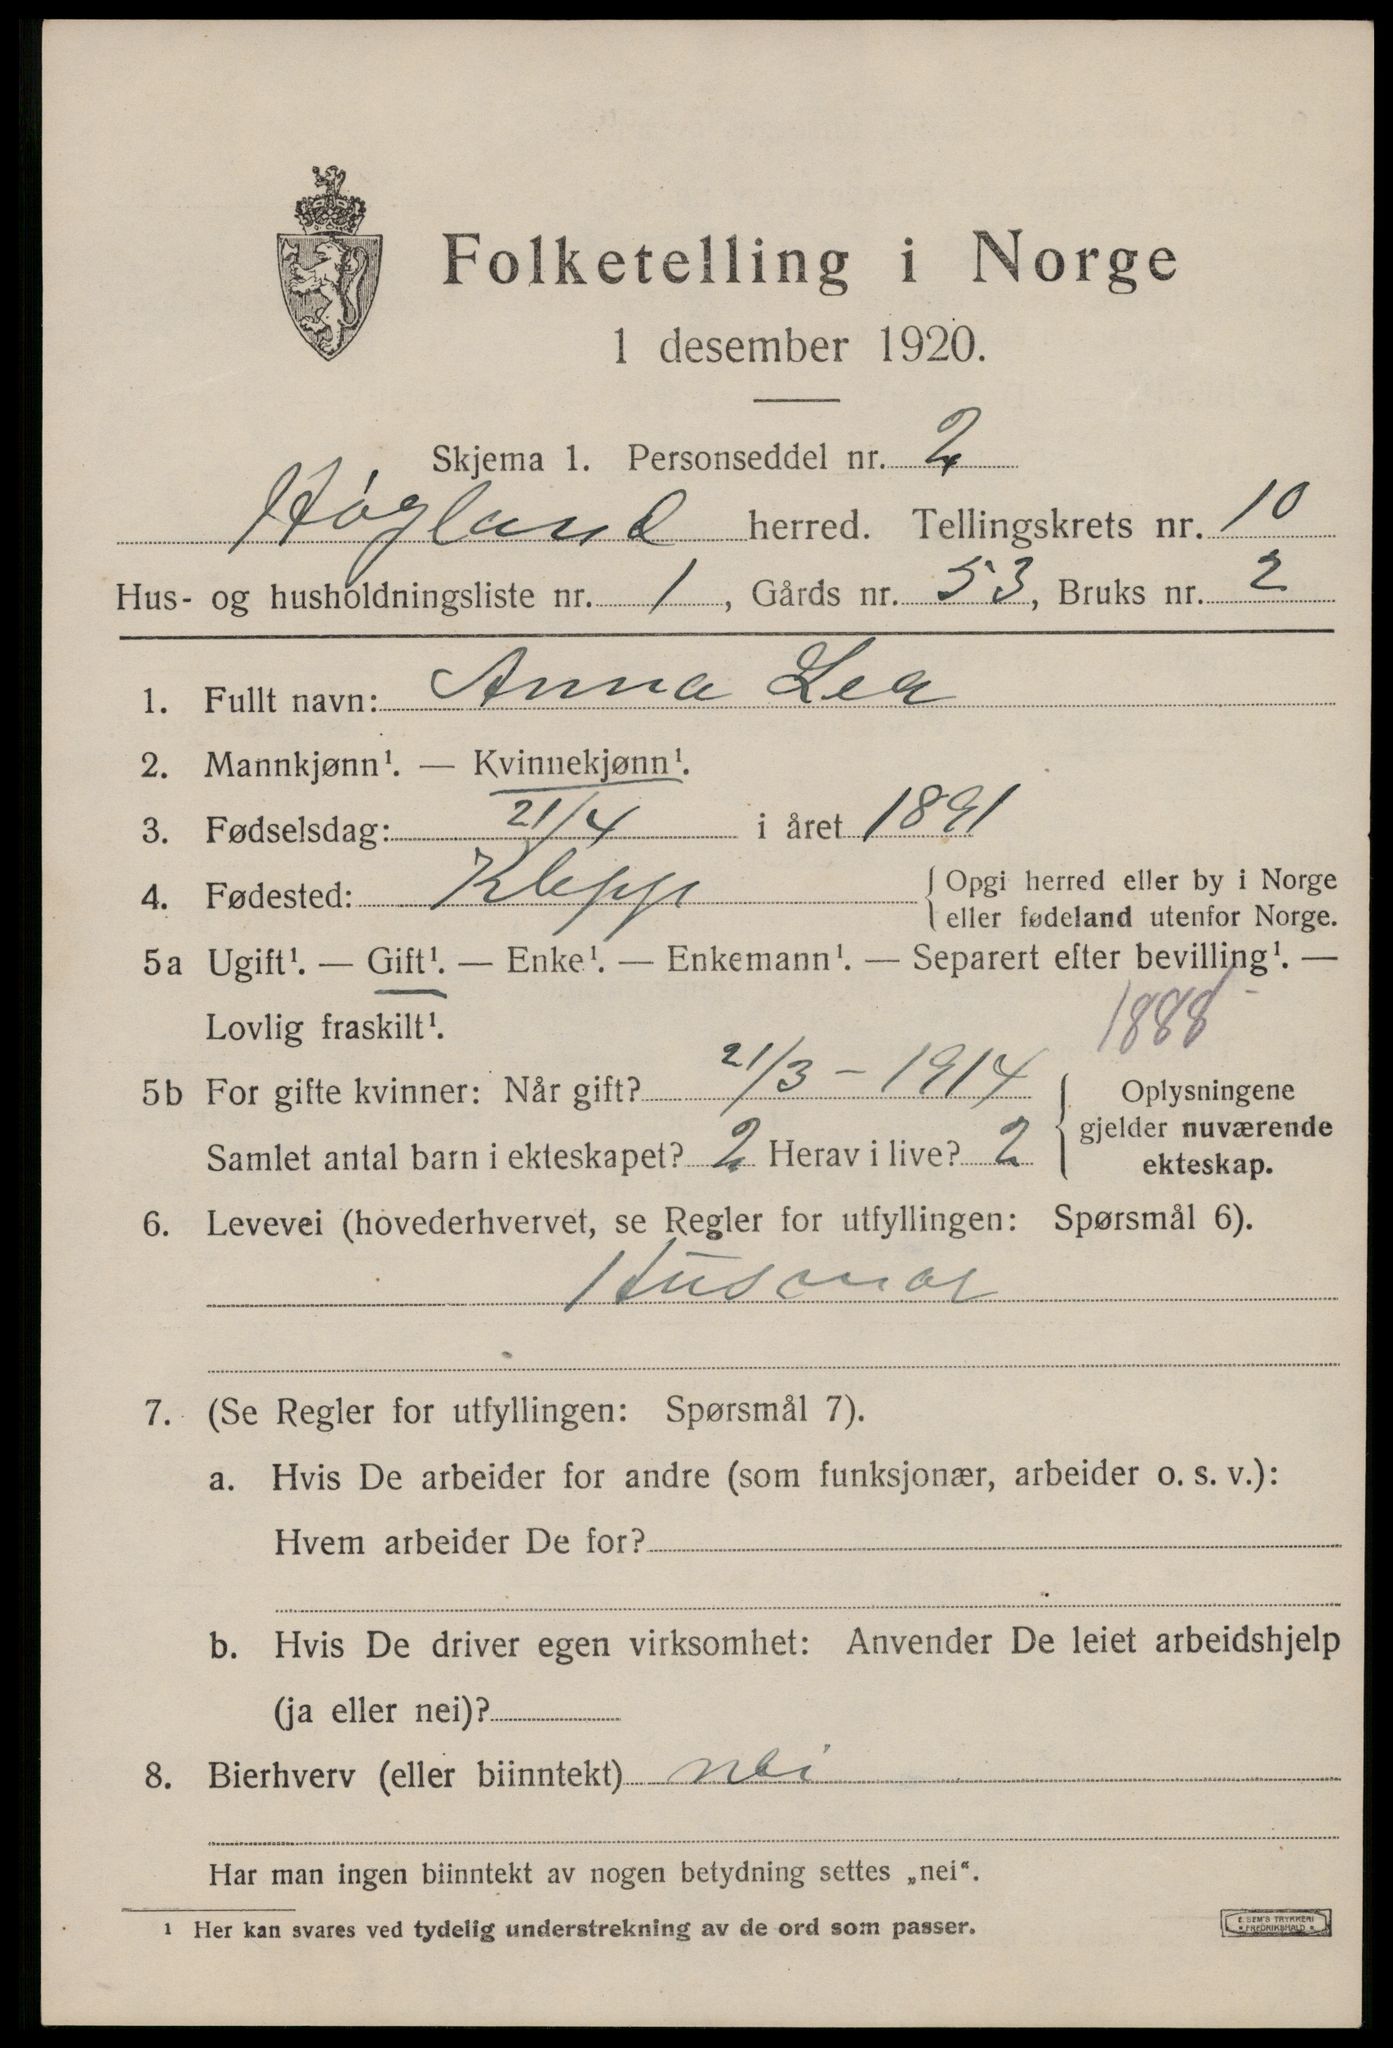 Folketelling i Norge
1 desember 1920.
Skjema 1. Personseddel nr. 2
Høgland herred. Tellingskrets nr. 10
Hus- og husholdningsliste nr. 1, Gårds nr. 53, Bruks nr. 2
1. Fullt navn: Anna Lea
2. Mannkjønn¹. — Kvinnekjønn¹.
3. Fødselsdag: 21/4 i året 1891
4. Fødested: Klepp { Opgi herred eller by i Norge
eller fødeland utenfor Norge.
5a Ugift¹. — Gift¹. — Enke¹. — Enkemann¹. — Separert efter bevilling¹. —
Lovlig fraskilt¹. 1888
5b For gifte kvinner: Når gift? 21/3 – 1914
Samlet antal barn i ekteskapet? 2 Herav i live? 2
Oplysningene
gjelder nuværende
ekteskap.
6. Levevei (hovederhvervet, se Regler for utfyllingen: Spørsmål 6).
Husmor
7. (Se Regler for utfyllingen: Spørsmål 7).
a. Hvis De arbeider for andre (som funksjonær, arbeider o. s. v.):
Hvem arbeider De for?
b. Hvis De driver egen virksomhet: Anvender De leiet arbeidshjelp
(ja eller nei)?
8. Bierhverv (eller biinntekt) nei
Har man ingen biinntekt av nogen betydning settes „nei“.
¹ Her kan svares ved tydelig understrekning av de ord som passer.
E. SEM'S TRYKKERI
FREDRIKSHALD